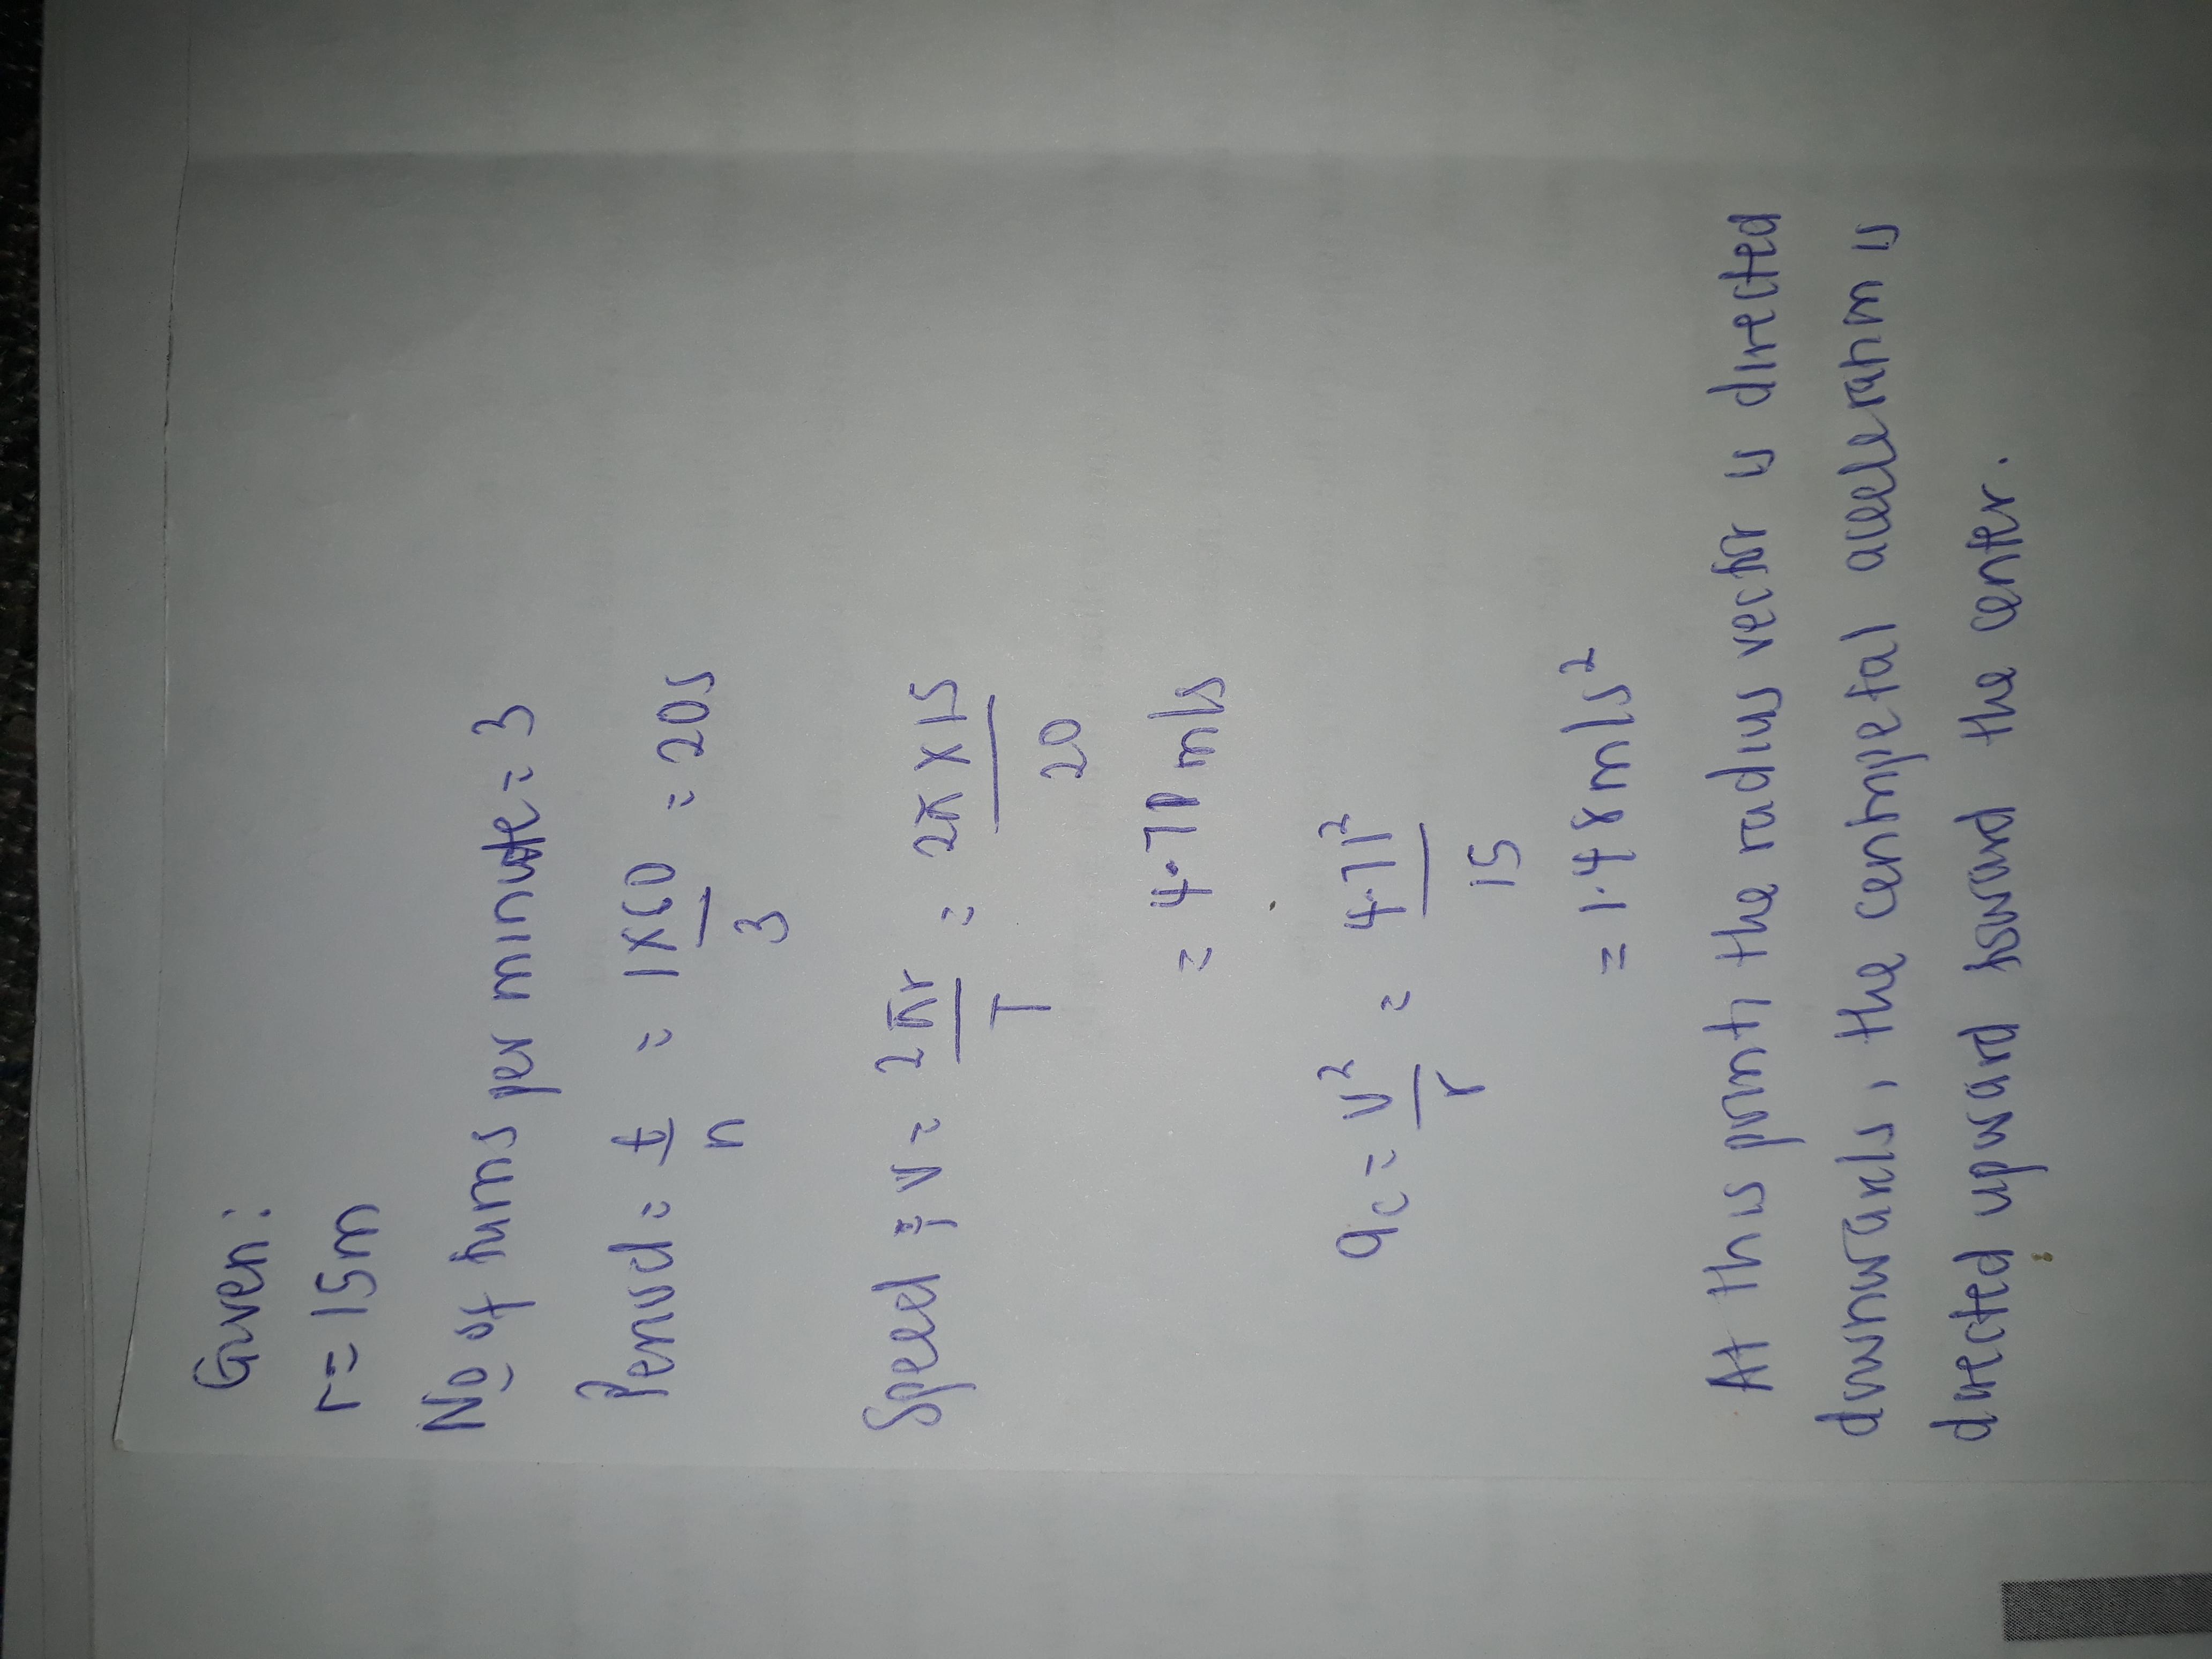 Given:
r = 15m
No of turns per minute = 3
Period = t/n = 1x60/3 = 20s
Speed ; v = 2πr/T = 2π x 15/20
= 4.71 m/s
ac = v²/r = 4.71²/15
= 1.48 m/s²
At this point, the radius vector is directed
downwards, the centripetal acceleration is
directed upward toward the center.